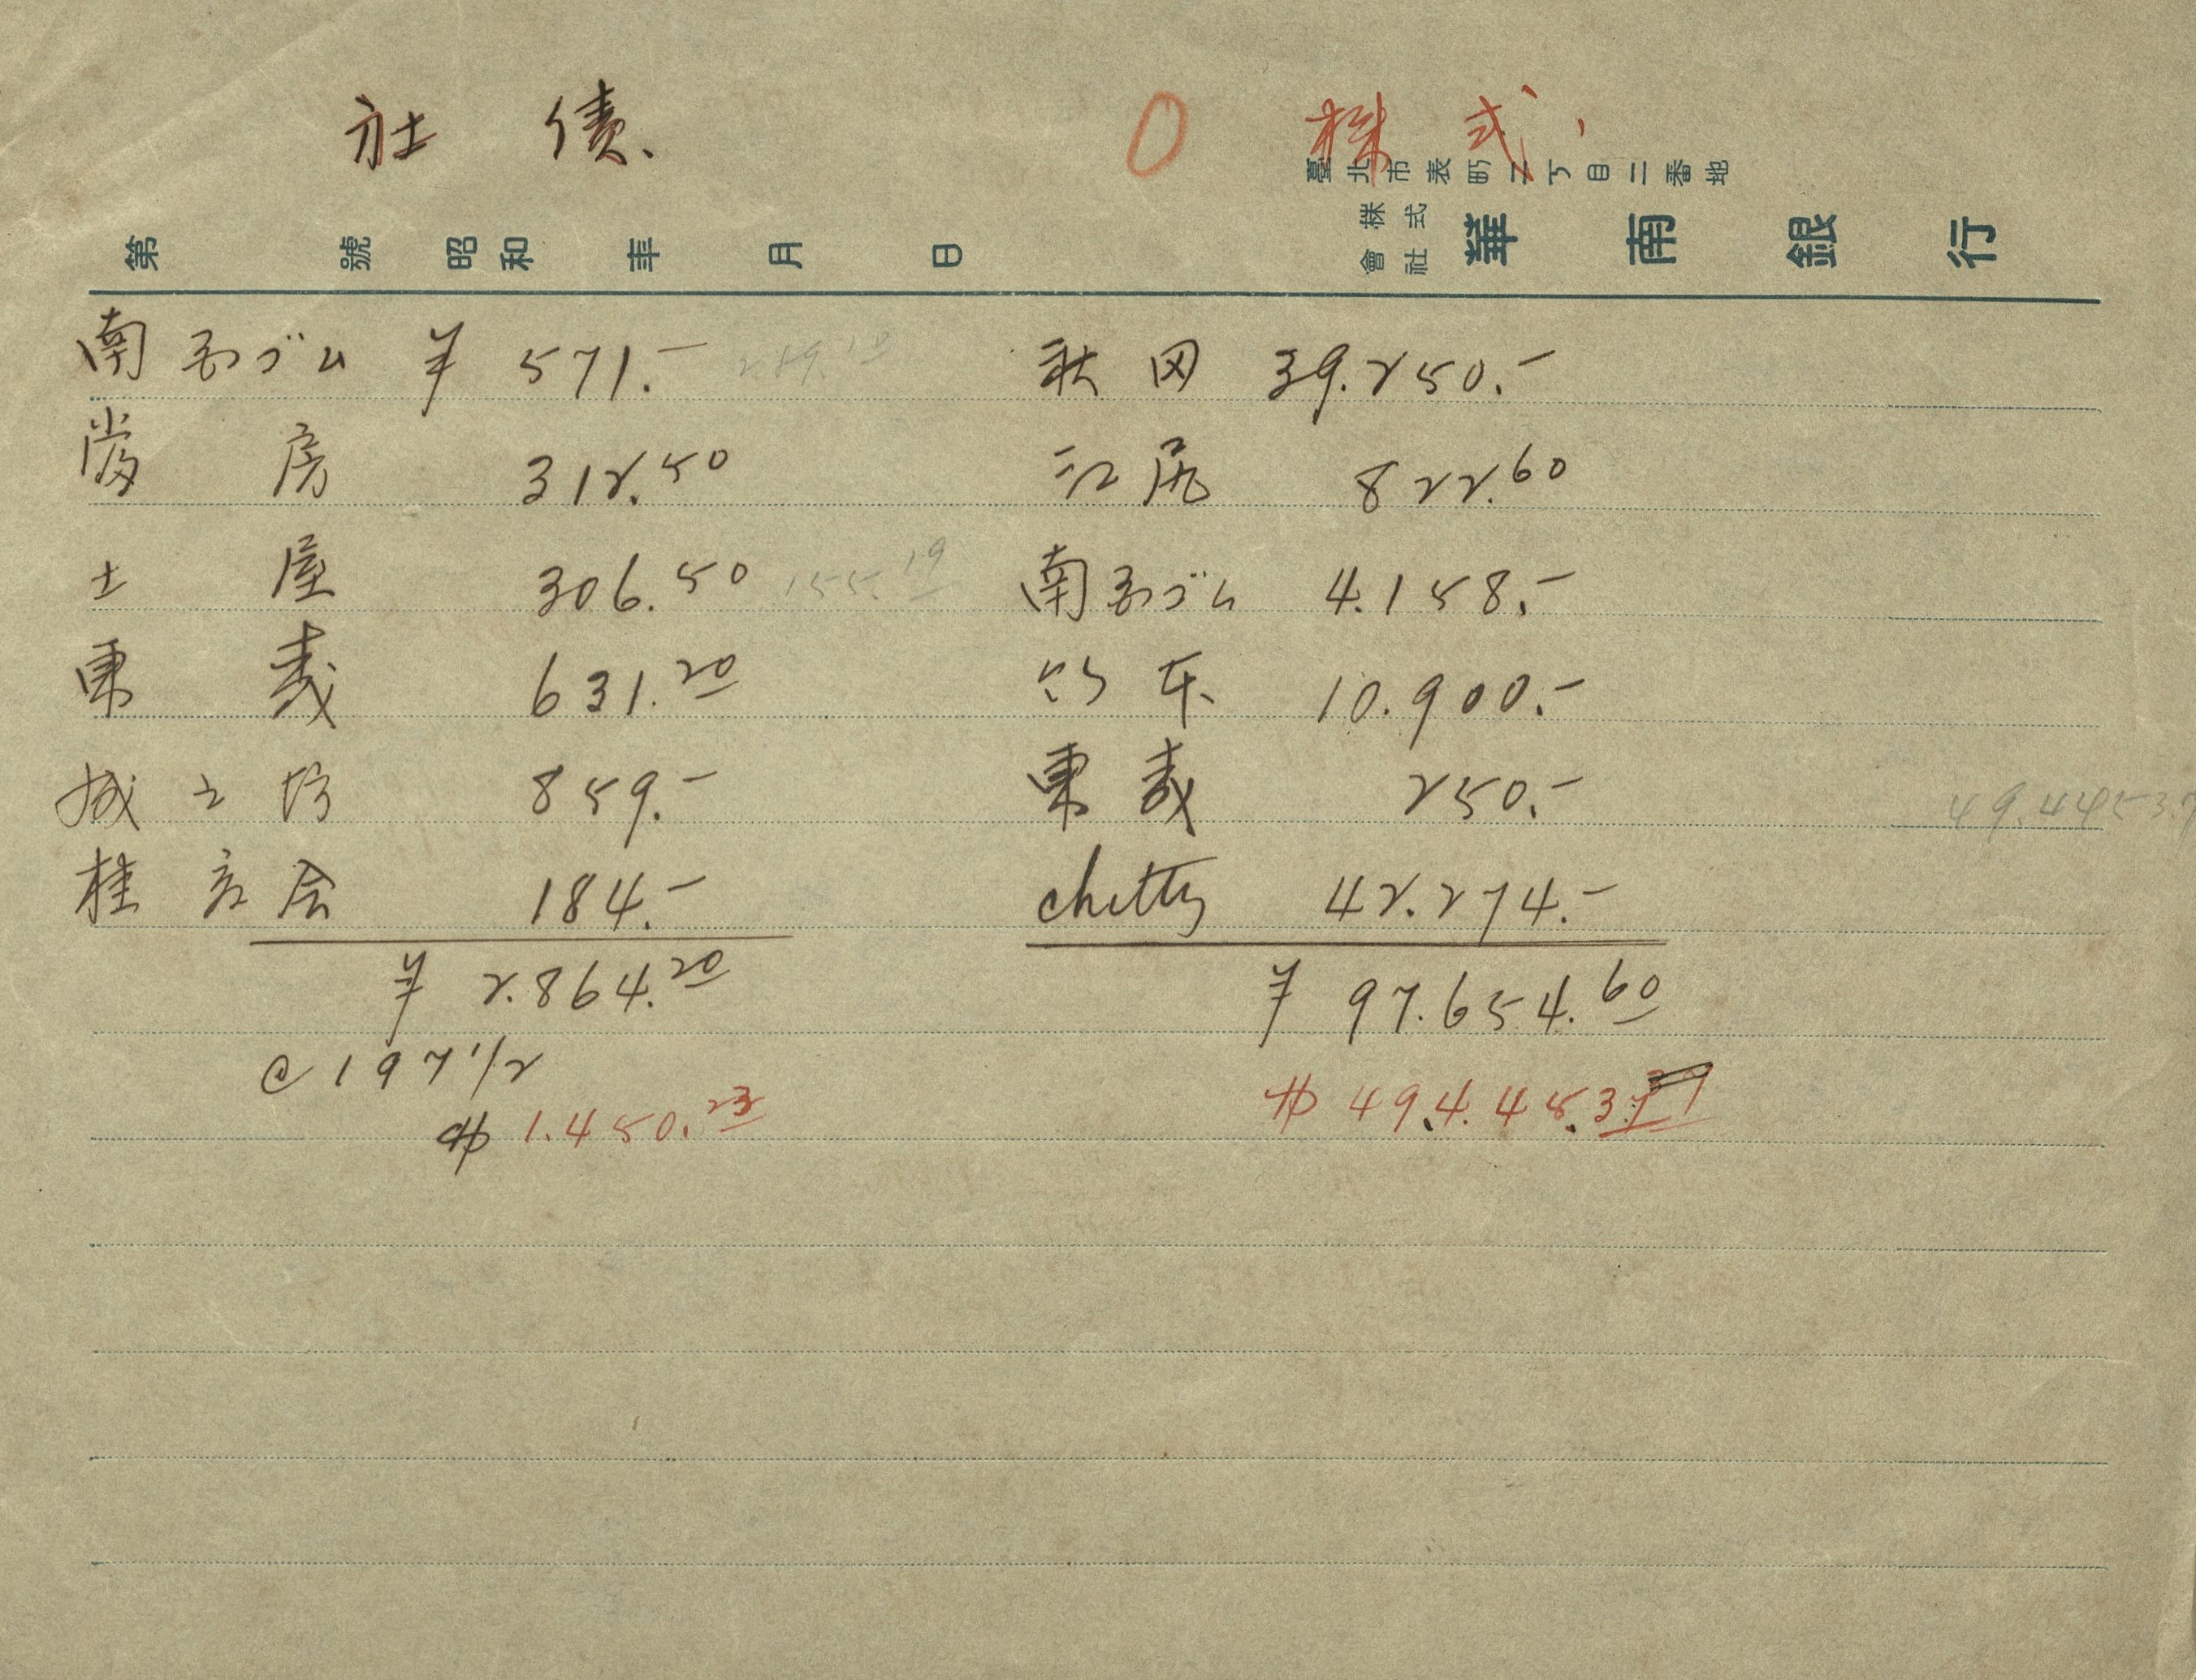 社 債、
○ 株 式、
臺北市表町二丁目二番地
株式會社 華南銀行
第 號 昭和 年 月 日
南亜ゴム ¥ 571.- 289.10
當房 312.50
土屋 306.50 155.19
東義 631.20
城之坊 859.-
桂 会 184.-
¥ 2.864.20
@ 197 1/2
$ 1.450.23
秋岡 39.250.-
江尻 822.60
南亜ゴム 4.158.-
竹本 10.900.-
東義 250.-
chetty 42.274.-
¥ 97.654.60
$ 49.445.37
49.445.37